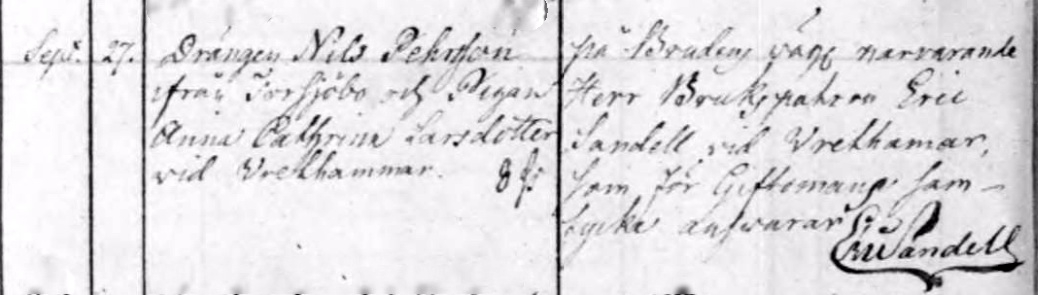 Sept. 27. Drängen Nils Pehrsson
ifrån Torsjöbo och Pigan
Anna Cathrina Larsdotter
vid Vrethammar. 8 s:
på Brudens vägn närvarande
Herr Brukspatron Eric
Sandell vid Vrethamar,
som för Giftomans sam-
tycke answarar
Sandell